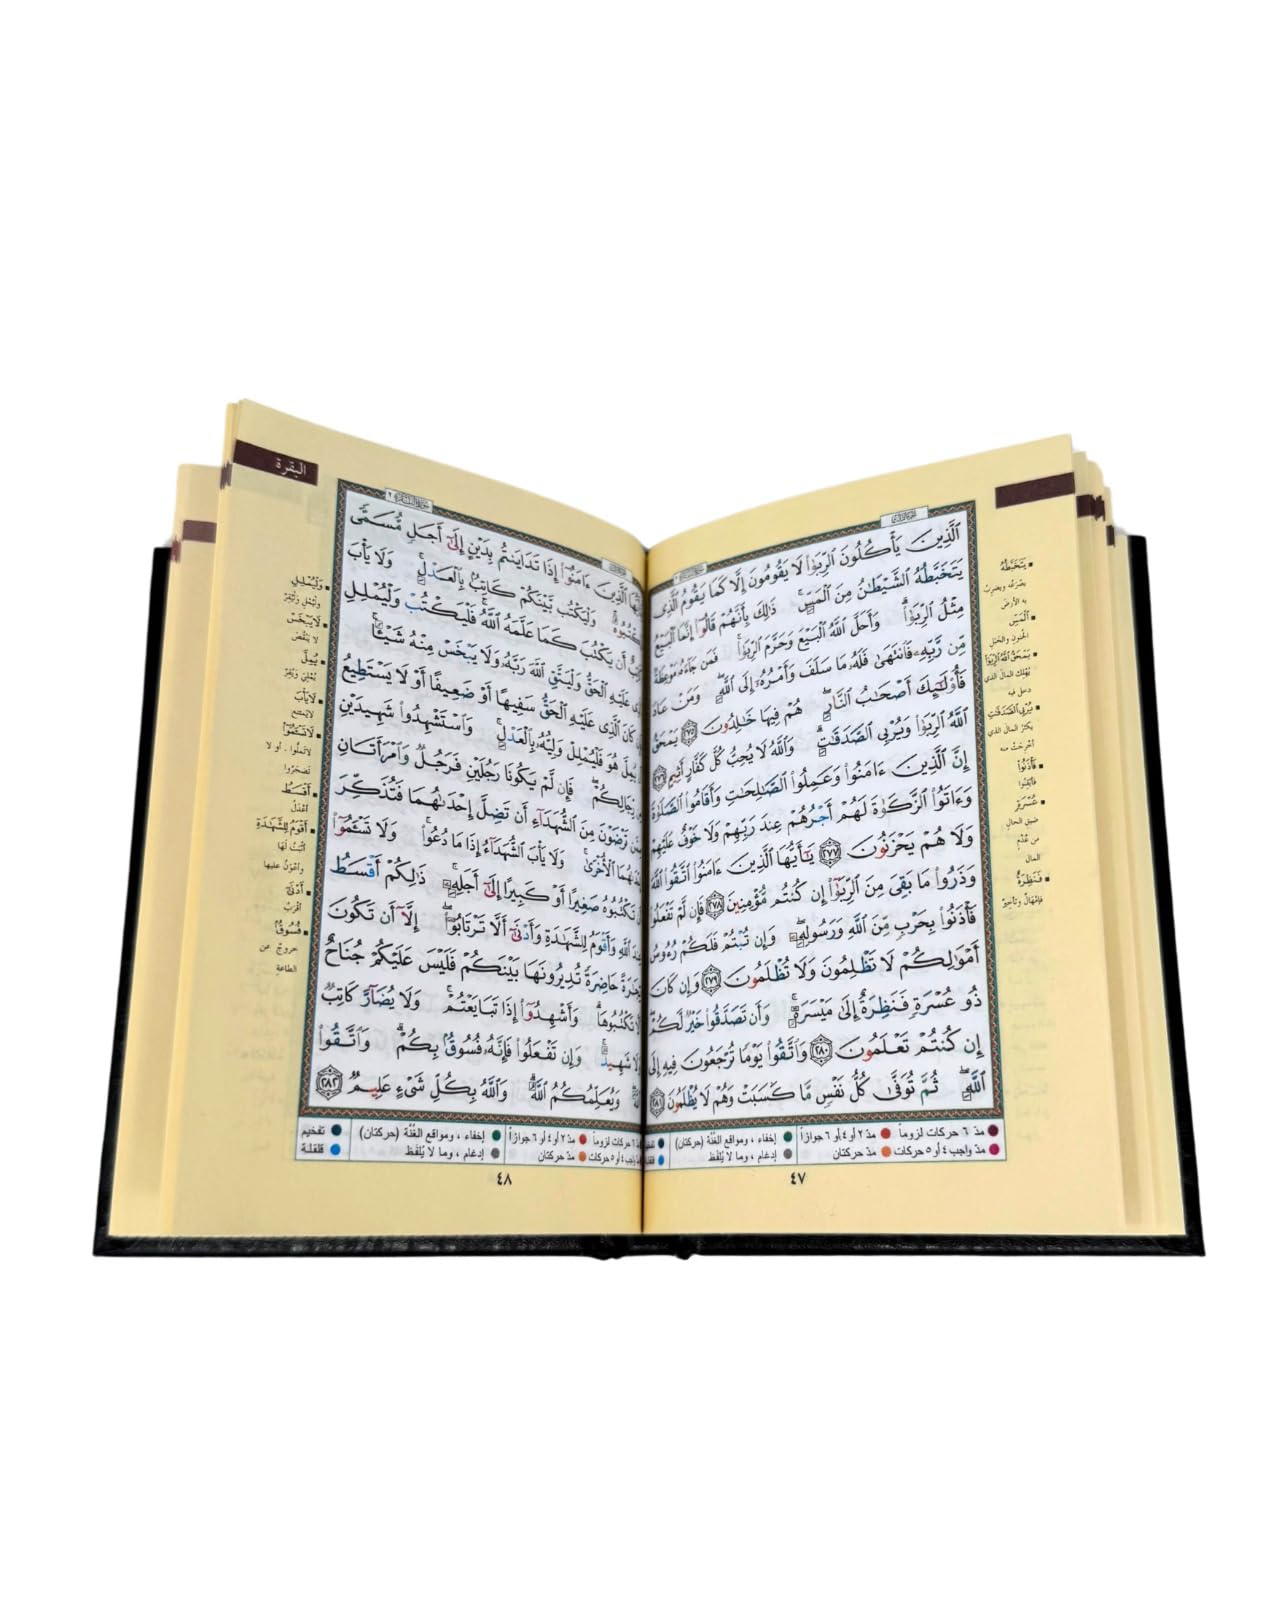 ٱلَّذِينَ يَأْكُلُونَ ٱلرِّبَوٰا۟ لَا يَقُومُونَ إِلَّا كَمَا يَقُومُ ٱلَّذِى
يَتَخَبَّطُهُ ٱلشَّيْطَٰنُ مِنَ ٱلْمَسِّ ۚ ذَٰلِكَ بِأَنَّهُمْ قَالُوٓا۟ إِنَّمَا ٱلْبَيْعُ
مِثْلُ ٱلرِّبَوٰا۟ ۗ وَأَحَلَّ ٱللَّهُ ٱلْبَيْعَ وَحَرَّمَ ٱلرِّبَوٰا۟ ۚ فَمَن جَآءَهُۥ مَوْعِظَةٌ
مِّن رَّبِّهِۦ فَٱنتَهَىٰ فَلَهُۥ مَا سَلَفَ وَأَمْرُهُۥٓ إِلَى ٱللَّهِ ۖ وَمَنْ عَادَ
فَأُو۟لَٰٓئِكَ أَصْحَٰبُ ٱلنَّارِ ۖ هُمْ فِيهَا خَٰلِدُونَ ٢٧٥ يَمْحَقُ
ٱللَّهُ ٱلرِّبَوٰا۟ وَيُرْبِى ٱلصَّدَقَٰتِ ۗ وَٱللَّهُ لَا يُحِبُّ كُلَّ كَفَّارٍ أَثِيمٍ ٢٧٦
إِنَّ ٱلَّذِينَ ءَامَنُوا۟ وَعَمِلُوا۟ ٱلصَّٰلِحَٰتِ وَأَقَامُوا۟ ٱلصَّلَوٰةَ
وَءَاتَوُا۟ ٱلزَّكَوٰةَ لَهُمْ أَجْرُهُمْ عِندَ رَبِّهِمْ وَلَا خَوْفٌ عَلَيْهِمْ
وَلَا هُمْ يَحْزَنُونَ ٢٧٧ يَٰٓأَيُّهَا ٱلَّذِينَ ءَامَنُوا۟ ٱتَّقُوا۟ ٱللَّهَ
وَذَرُوا۟ مَا بَقِىَ مِنَ ٱلرِّبَوٰٓا۟ إِن كُنتُم مُّؤْمِنِينَ ٢٧٨ فَإِن لَّمْ تَفْعَلُوا۟
فَأْذَنُوا۟ بِحَرْبٍ مِّنَ ٱللَّهِ وَرَسُولِهِۦ ۖ وَإِن تُبْتُمْ فَلَكُمْ رُءُوسُ
أَمْوَٰلِكُمْ لَا تَظْلِمُونَ وَلَا تُظْلَمُونَ ٢٧٩ وَإِن كَانَ
ذُو عُسْرَةٍ فَنَظِرَةٌ إِلَىٰ مَيْسَرَةٍ ۚ وَأَن تَصَدَّقُوا۟ خَيْرٌ لَّكُمْ ۖ
إِن كُنتُمْ تَعْلَمُونَ ٢٨٠ وَٱتَّقُوا۟ يَوْمًا تُرْجَعُونَ فِيهِ إِلَى
ٱللَّهِ ۖ ثُمَّ تُوَفَّىٰ كُلُّ نَفْسٍ مَّا كَسَبَتْ وَهُمْ لَا يُظْلَمُونَ ٢٨١
يَتَخَبَّطُهُ
يصرعه ويضرب
به الأرض
ٱلْمَسِّ
الجنون والخبل
يَمْحَقُ ٱللَّهُ ٱلرِّبَوٰا۟
يهلك المال الذي
دخل فيه
يُرْبِى ٱلصَّدَقَٰتِ
يكثر المال الذي
أخرجت منه
فَأْذَنُوا۟
فأيقنوا
عُسْرَةٍ
ضيق الحال
من عدم
المال
فَنَظِرَةٌ
فإمهال وتأخير
مدّ ٦ حركات لزوماً مدّ ٢ أو ٤ أو ٦ جوازاً إخفاء ، ومواقع الغُنَّة (حركتان)
مدّ واجب ٤ أو ٥ حركات مدّ حركتان إدغام ، وما لا يُلفَظ
٤٧
البقرة
ٱلَّذِينَ ءَامَنُوٓا۟ إِذَا تَدَايَنتُم بِدَيْنٍ إِلَىٰٓ أَجَلٍ مُّسَمًّى
وَلْيَكْتُب بَّيْنَكُمْ كَاتِبٌۢ بِٱلْعَدْلِ ۚ وَلَا يَأْبَ
أَن يَكْتُبَ كَمَا عَلَّمَهُ ٱللَّهُ ۚ فَلْيَكْتُبْ وَلْيُمْلِلِ
عَلَيْهِ ٱلْحَقُّ وَلْيَتَّقِ ٱللَّهَ رَبَّهُۥ وَلَا يَبْخَسْ مِنْهُ شَيْـًٔا ۚ
كَانَ ٱلَّذِى عَلَيْهِ ٱلْحَقُّ سَفِيهًا أَوْ ضَعِيفًا أَوْ لَا يَسْتَطِيعُ
يُمِلَّ هُوَ فَلْيُمْلِلْ وَلِيُّهُۥ بِٱلْعَدْلِ ۚ وَٱسْتَشْهِدُوا۟ شَهِيدَيْنِ
رِّجَالِكُمْ ۖ فَإِن لَّمْ يَكُونَا رَجُلَيْنِ فَرَجُلٌ وَٱمْرَأَتَانِ
تَرْضَوْنَ مِنَ ٱلشُّهَدَآءِ أَن تَضِلَّ إِحْدَىٰهُمَا فَتُذَكِّرَ
ٱلْأُخْرَىٰ ۚ وَلَا يَأْبَ ٱلشُّهَدَآءُ إِذَا مَا دُعُوا۟ ۚ وَلَا تَسْـَٔمُوٓا۟
تَكْتُبُوهُ صَغِيرًا أَوْ كَبِيرًا إِلَىٰٓ أَجَلِهِۦ ۚ ذَٰلِكُمْ أَقْسَطُ
ٱللَّهِ وَأَقْوَمُ لِلشَّهَٰدَةِ وَأَدْنَىٰٓ أَلَّا تَرْتَابُوٓا۟ ۖ إِلَّآ أَن تَكُونَ
حَاضِرَةً تُدِيرُونَهَا بَيْنَكُمْ فَلَيْسَ عَلَيْكُمْ جُنَاحٌ
تَكْتُبُوهَا ۗ وَأَشْهِدُوٓا۟ إِذَا تَبَايَعْتُمْ ۚ وَلَا يُضَآرَّ كَاتِبٌ
شَهِيدٌ ۚ وَإِن تَفْعَلُوا۟ فَإِنَّهُۥ فُسُوقٌۢ بِكُمْ ۗ وَٱتَّقُوا۟
وَيُعَلِّمُكُمُ ٱللَّهُ ۗ وَٱللَّهُ بِكُلِّ شَىْءٍ عَلِيمٌ ٢٨٢
وَلْيُمْلِلِ
وليُمْلِ وليُقِرَّ
لَا يَبْخَسْ
لا يَنْقُصْ
يُمِلَّ
يُمْلِيَ ويُقِرَّ
لَا يَأْبَ
لا يمتنع
لَا تَسْـَٔمُوٓا۟
لا تملوا . أو لا
تضجروا
أَقْسَطُ
أعدل
أَقْوَمُ لِلشَّهَٰدَةِ
أثبت لها
وأعون عليها
أَدْنَىٰٓ
أقرب
فُسُوقٌۢ
خروج عن
الطاعة
مدّ ٢ أو ٤ أو ٦ جوازاً إخفاء ، ومواقع الغُنَّة (حركتان) تفخيم
مدّ حركتان إدغام ، وما لا يُلفَظ قلقلة
٤٨